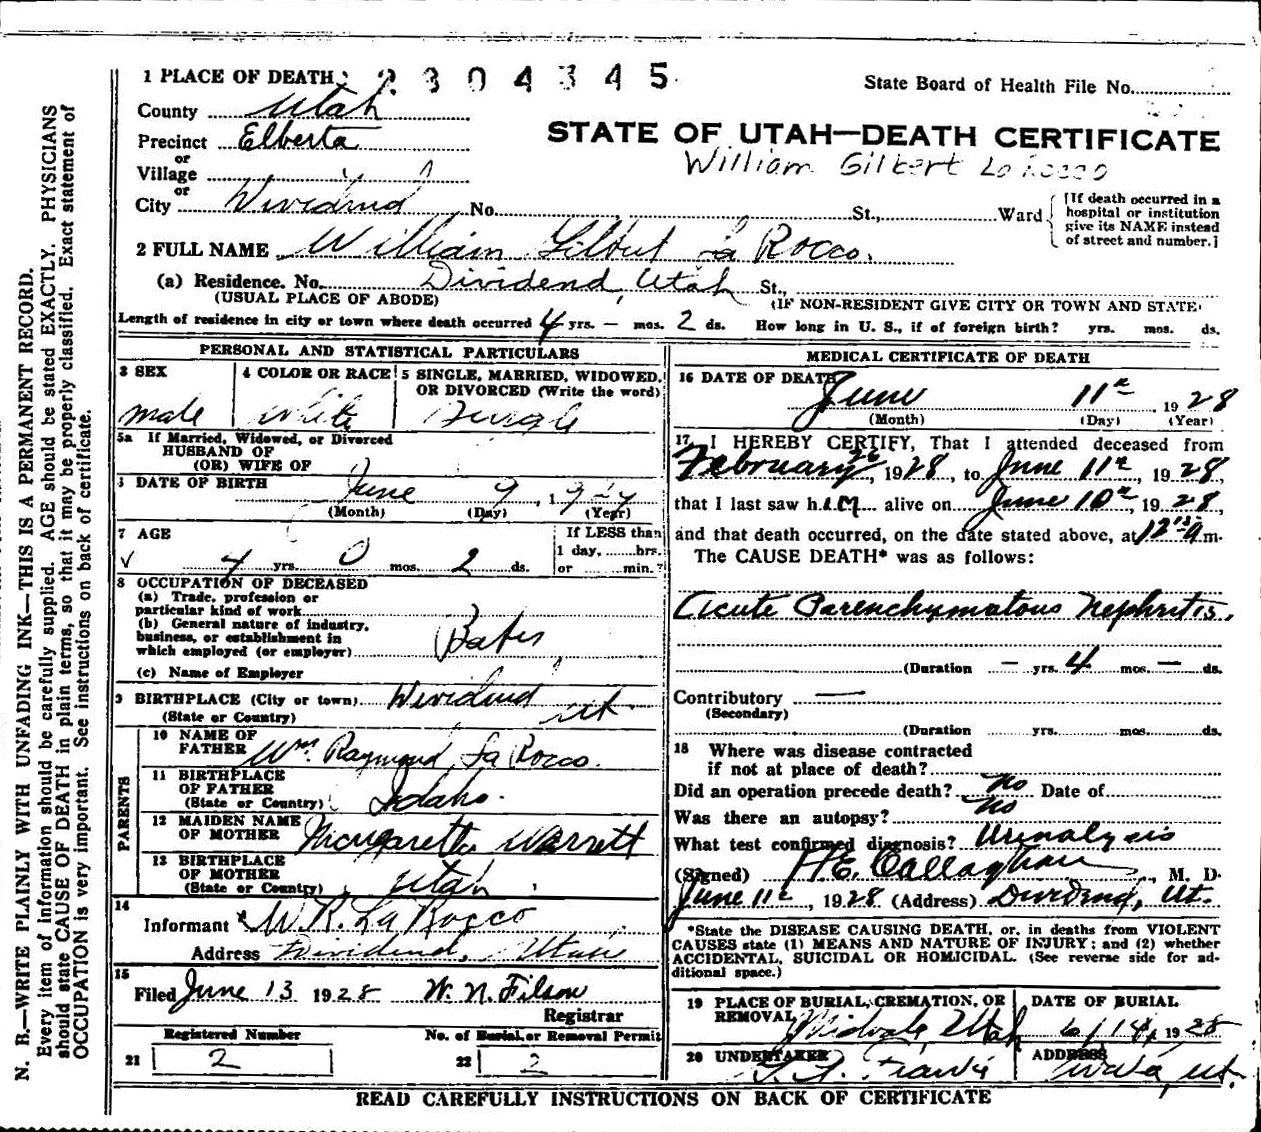 N. B.—WRITE PLAINLY WITH UNFADING INK—THIS IS A PERMANENT RECORD.
Every item of information should be carefully supplied. AGE should be stated EXACTLY. PHYSICIANS
should state CAUSE OF DEATH in plain terms, so that it may be properly classified. Exact statement of
OCCUPATION is very important. See instructions on back of certificate.
1 PLACE OF DEATH 2304345
State Board of Health File No.
County Utah
STATE OF UTAH—DEATH CERTIFICATE
Precinct Elberta
William Gilbert La Rocco
or
Village
or
City Dividend No. St., Ward
[If death occurred in a
hospital or institution
give its NAME instead
of street and number.]
2 FULL NAME William Gilbert La Rocco.
(a) Residence. No. Dividend, Utah St.,
(USUAL PLACE OF ABODE) (IF NON-RESIDENT GIVE CITY OR TOWN AND STATE)
Length of residence in city or town where death occurred 4 yrs. – mos. 2 ds. How long in U. S., if of foreign birth? yrs. mos. ds.
PERSONAL AND STATISTICAL PARTICULARS
3 SEX
male
4 COLOR OR RACE
White
5 SINGLE, MARRIED, WIDOWED,
OR DIVORCED (Write the word)
Single
5a If Married, Widowed, or Divorced
HUSBAND OF
(OR) WIFE OF
DATE OF BIRTH June 9, 1924
(Month) (Day) (Year)
7 AGE
4 yrs. 0 mos. 2 ds.
If LESS than
1 day, hrs.
or min.?
8 OCCUPATION OF DECEASED
(a) Trade, profession or
particular kind of work
(b) General nature of industry,
business, or establishment in
which employed (or employer)
(c) Name of Employer
9 BIRTHPLACE (City or town) Dividend
(State or Country) Ut.
PARENTS
10 NAME OF
FATHER Wm. Raymond La Rocco.
11 BIRTHPLACE
OF FATHER
(State or Country) Idaho.
12 MAIDEN NAME
OF MOTHER Margaretta
13 BIRTHPLACE
OF MOTHER
(State or Country) Utah
14
Informant W. R. La Rocco
Address Dividend, Utah
15
Filed June 13 1928 W. N. Filson
Registrar
Registered Number No. of Burial or Removal Permit
21 2 22 2
MEDICAL CERTIFICATE OF DEATH
16 DATE OF DEATH June 11th 1928
(Month) (Day) (Year)
17 I HEREBY CERTIFY, That I attended deceased from
February 26, 1928, to June 11th, 1928,
that I last saw him alive on June 10th, 1928,
and that death occurred, on the date stated above, at 12 15 A m.
The CAUSE DEATH* was as follows:
Acute Parenchymatous Nephritis.
(Duration – yrs. 4 mos. – ds.
Contributory —
(Secondary)
(Duration yrs. mos. ds.
18 Where was disease contracted
if not at place of death?
Did an operation precede death? no Date of
Was there an autopsy? no
What test confirmed diagnosis? Urinalysis
(Signed) H E. Callaghan, M. D.
June 11th, 1928 (Address) Dividend, Ut.
*State the DISEASE CAUSING DEATH, or, in deaths from VIOLENT
CAUSES state (1) MEANS AND NATURE OF INJURY; and (2) whether
ACCIDENTAL, SUICIDAL OR HOMICIDAL. (See reverse side for ad-
ditional space.)
19 PLACE OF BURIAL, CREMATION, OR
REMOVAL Midvale, Utah
DATE OF BURIAL
6/14, 1928
20 UNDERTAKER
ADDRESS
READ CAREFULLY INSTRUCTIONS ON BACK OF CERTIFICATE